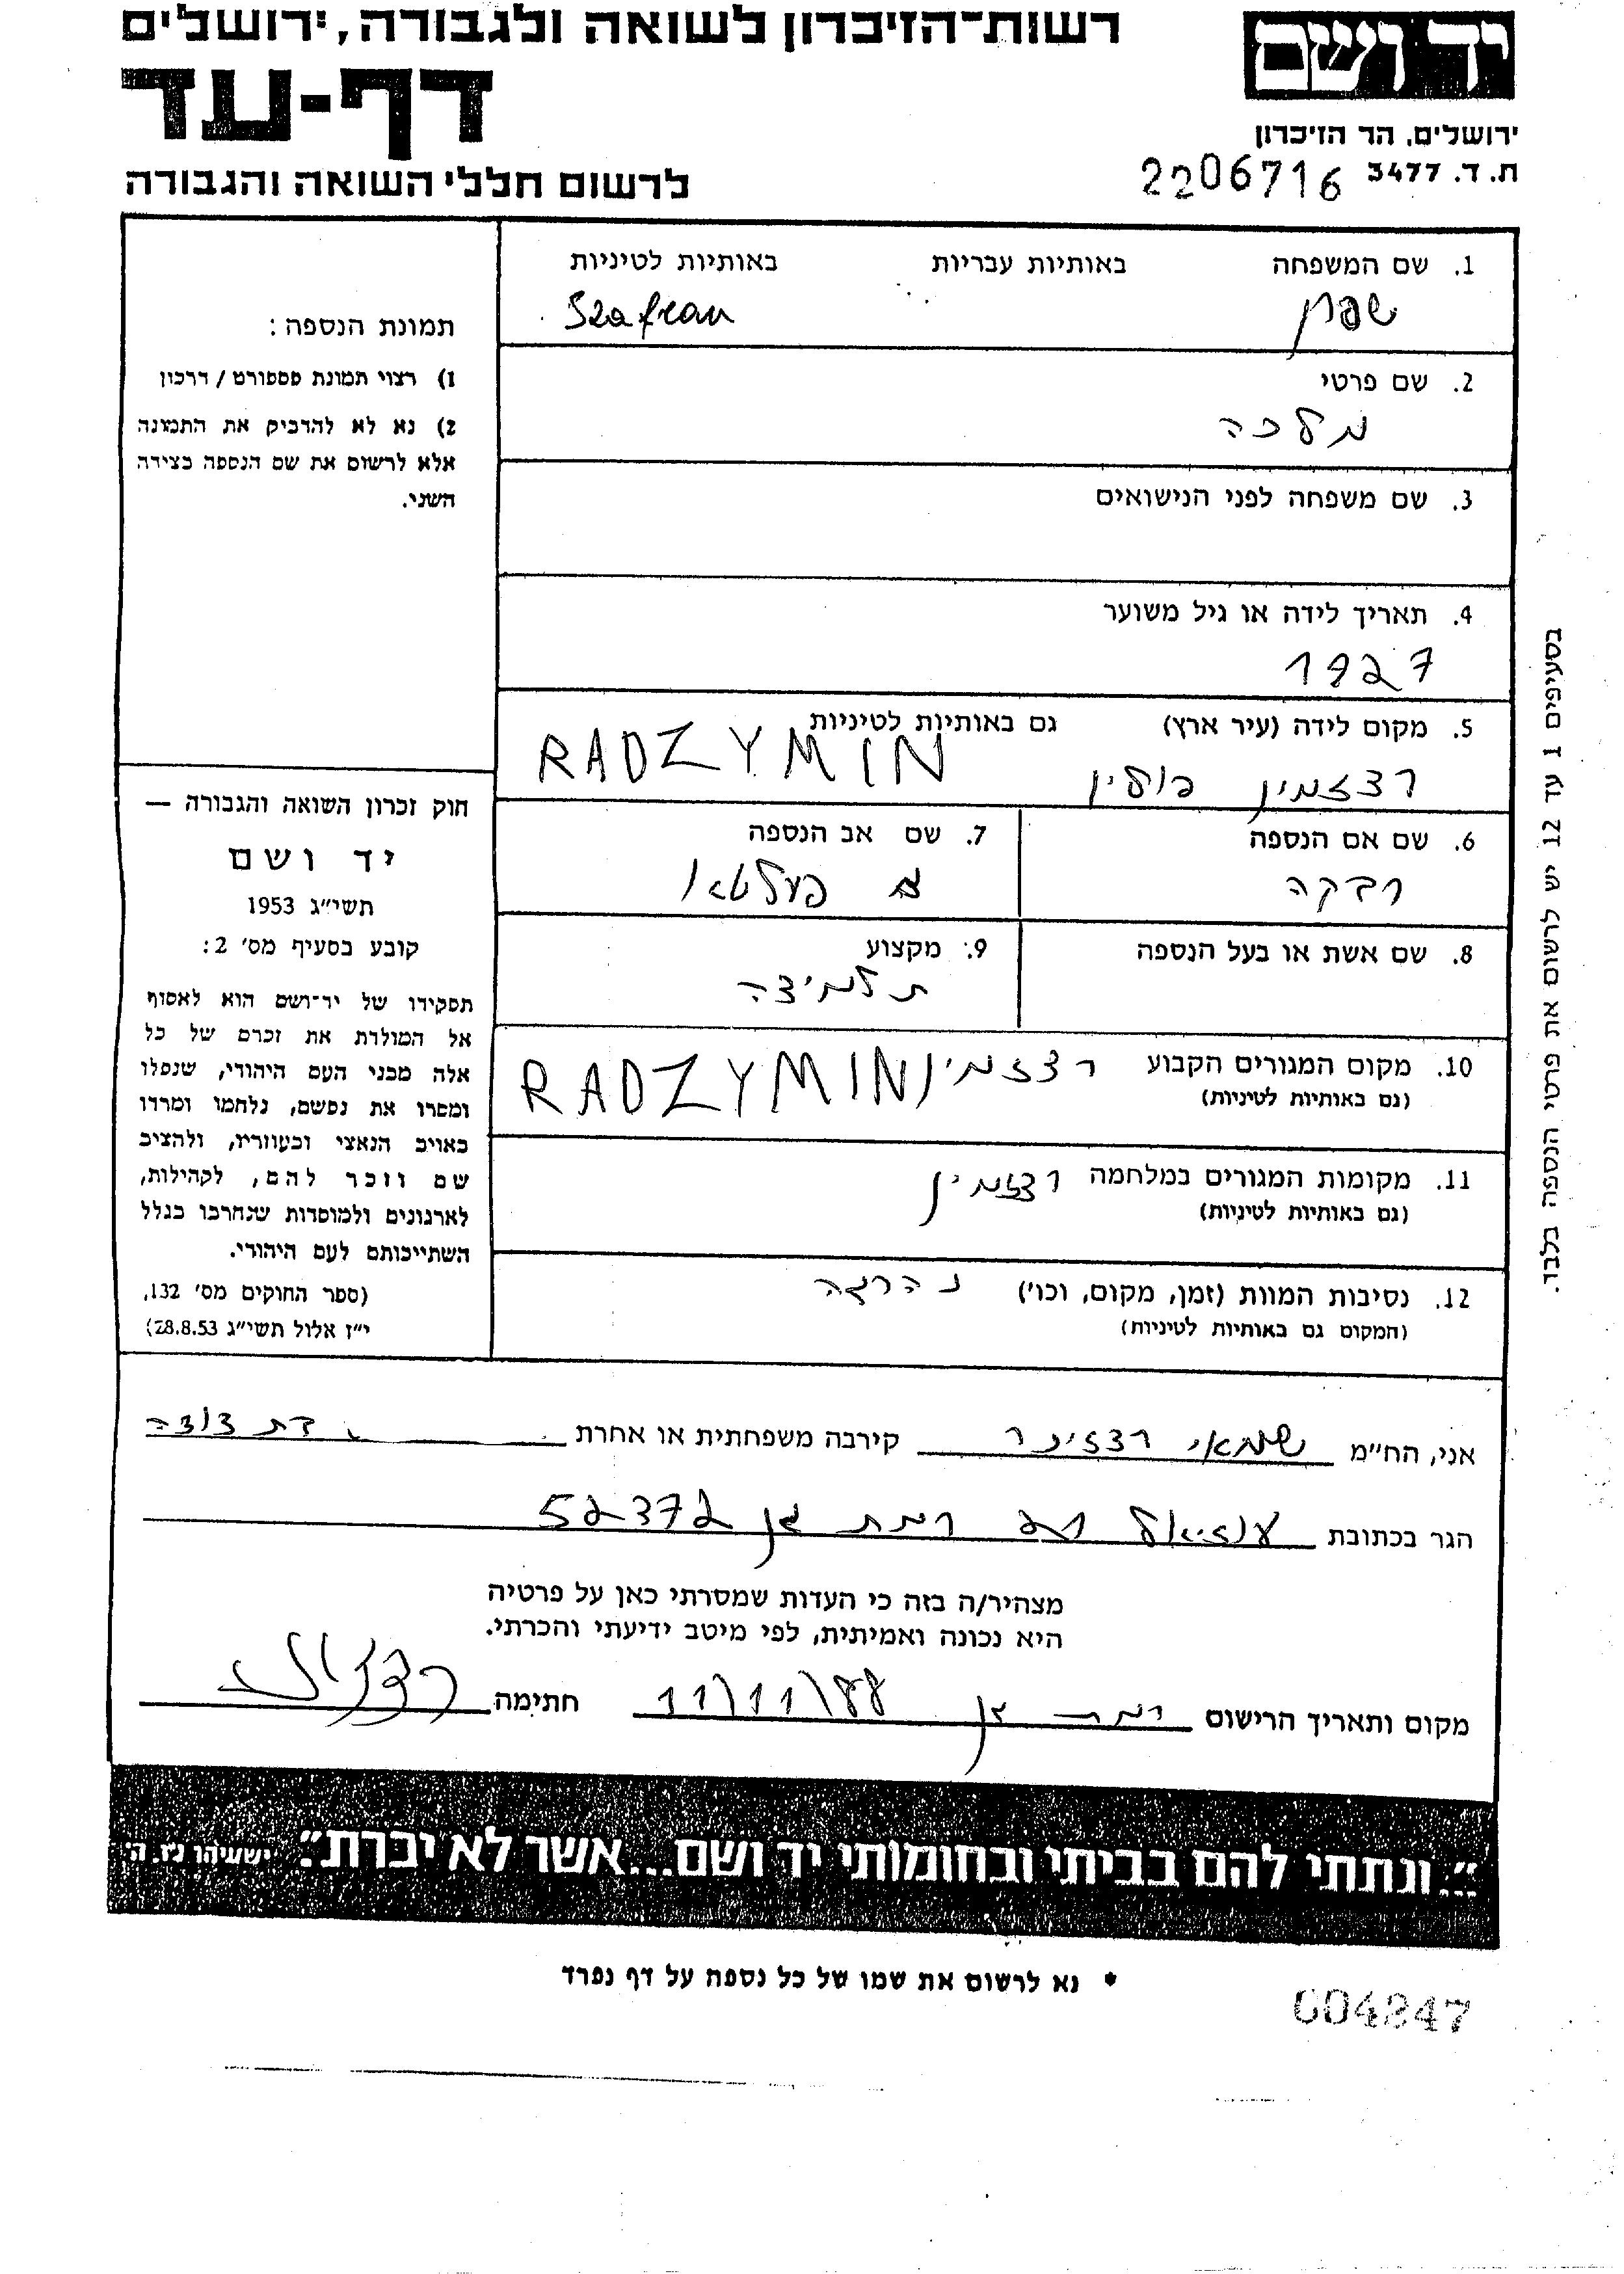 רשות־הזיכרון לשואה ולגבורה, ירושלים
יד ושם
דף-עד
ירושלים, הר הזיכרון
ת. ד. 3477
2206716
לרשום חללי השואה והגבורה
1. שם המשפחה באותיות עבריות באותיות לטיניות
שפרן Szafran
2. שם פרטי
מלכה
3. שם משפחה לפני הנישואים
4. תאריך לידה או גיל משוער
1927
5. מקום לידה (עיר ארץ) גם באותיות לטיניות
רצזמין פולין RADZYMIN
6. שם אם הנספה
רבקה
7. שם אב הנספה
8. שם אשת או בעל הנספה
9. מקצוע
תלמידה
10. מקום המגורים הקבוע רצזמין RADZYMIN
(גם באותיות לטיניות)
11. מקומות המגורים במלחמה רצזמין
(גם באותיות לטיניות)
12. נסיבות המוות (זמן, מקום, וכו') נהרגה
(המקום גם באותיות לטיניות)
תמונת הנספה:
1) רצוי תמונת פספורט / דרכון
2) נא לא להדביק את התמונה
אלא לרשום את שם הנספה בצידה
השני.
חוק זכרון השואה והגבורה —
יד ושם
תשי"ג 1953
קובע בסעיף מס' 2:
תפקידו של יד־ושם הוא לאסוף
אל המולדת את זכרם של כל
אלה מבני העם היהודי, שנפלו
ומסרו את נפשם, נלחמו ומרדו
באויב הנאצי ובעוזריו, ולהציב
שם וזכר להם, לקהילות,
לארגונים ולמוסדות שנחרבו בגלל
השתייכותם לעם היהודי.
(ספר החוקים מס' 132,
י"ז אלול תשי"ג 28.8.53)
בסעיפים 1 עד 12 יש לרשום את פרטי הנספה בלבד.
אני, הח"מ שמאי רצזינר קירבה משפחתית או אחרת בת דודה
הגר בכתובת עוזיאל רמת גן 52372
מצהיר/ה בזה כי העדות שמסרתי כאן על פרטיה
היא נכונה ואמיתית, לפי מיטב ידיעתי והכרתי.
מקום ותאריך הרישום רמת גן 11/11/88 חתימה
"...ונתתי להם בביתי ובחומותי יד ושם...אשר לא יכרת". ישעיהו נו, ה'
* נא לרשום את שמו של כל נספה על דף נפרד
004247